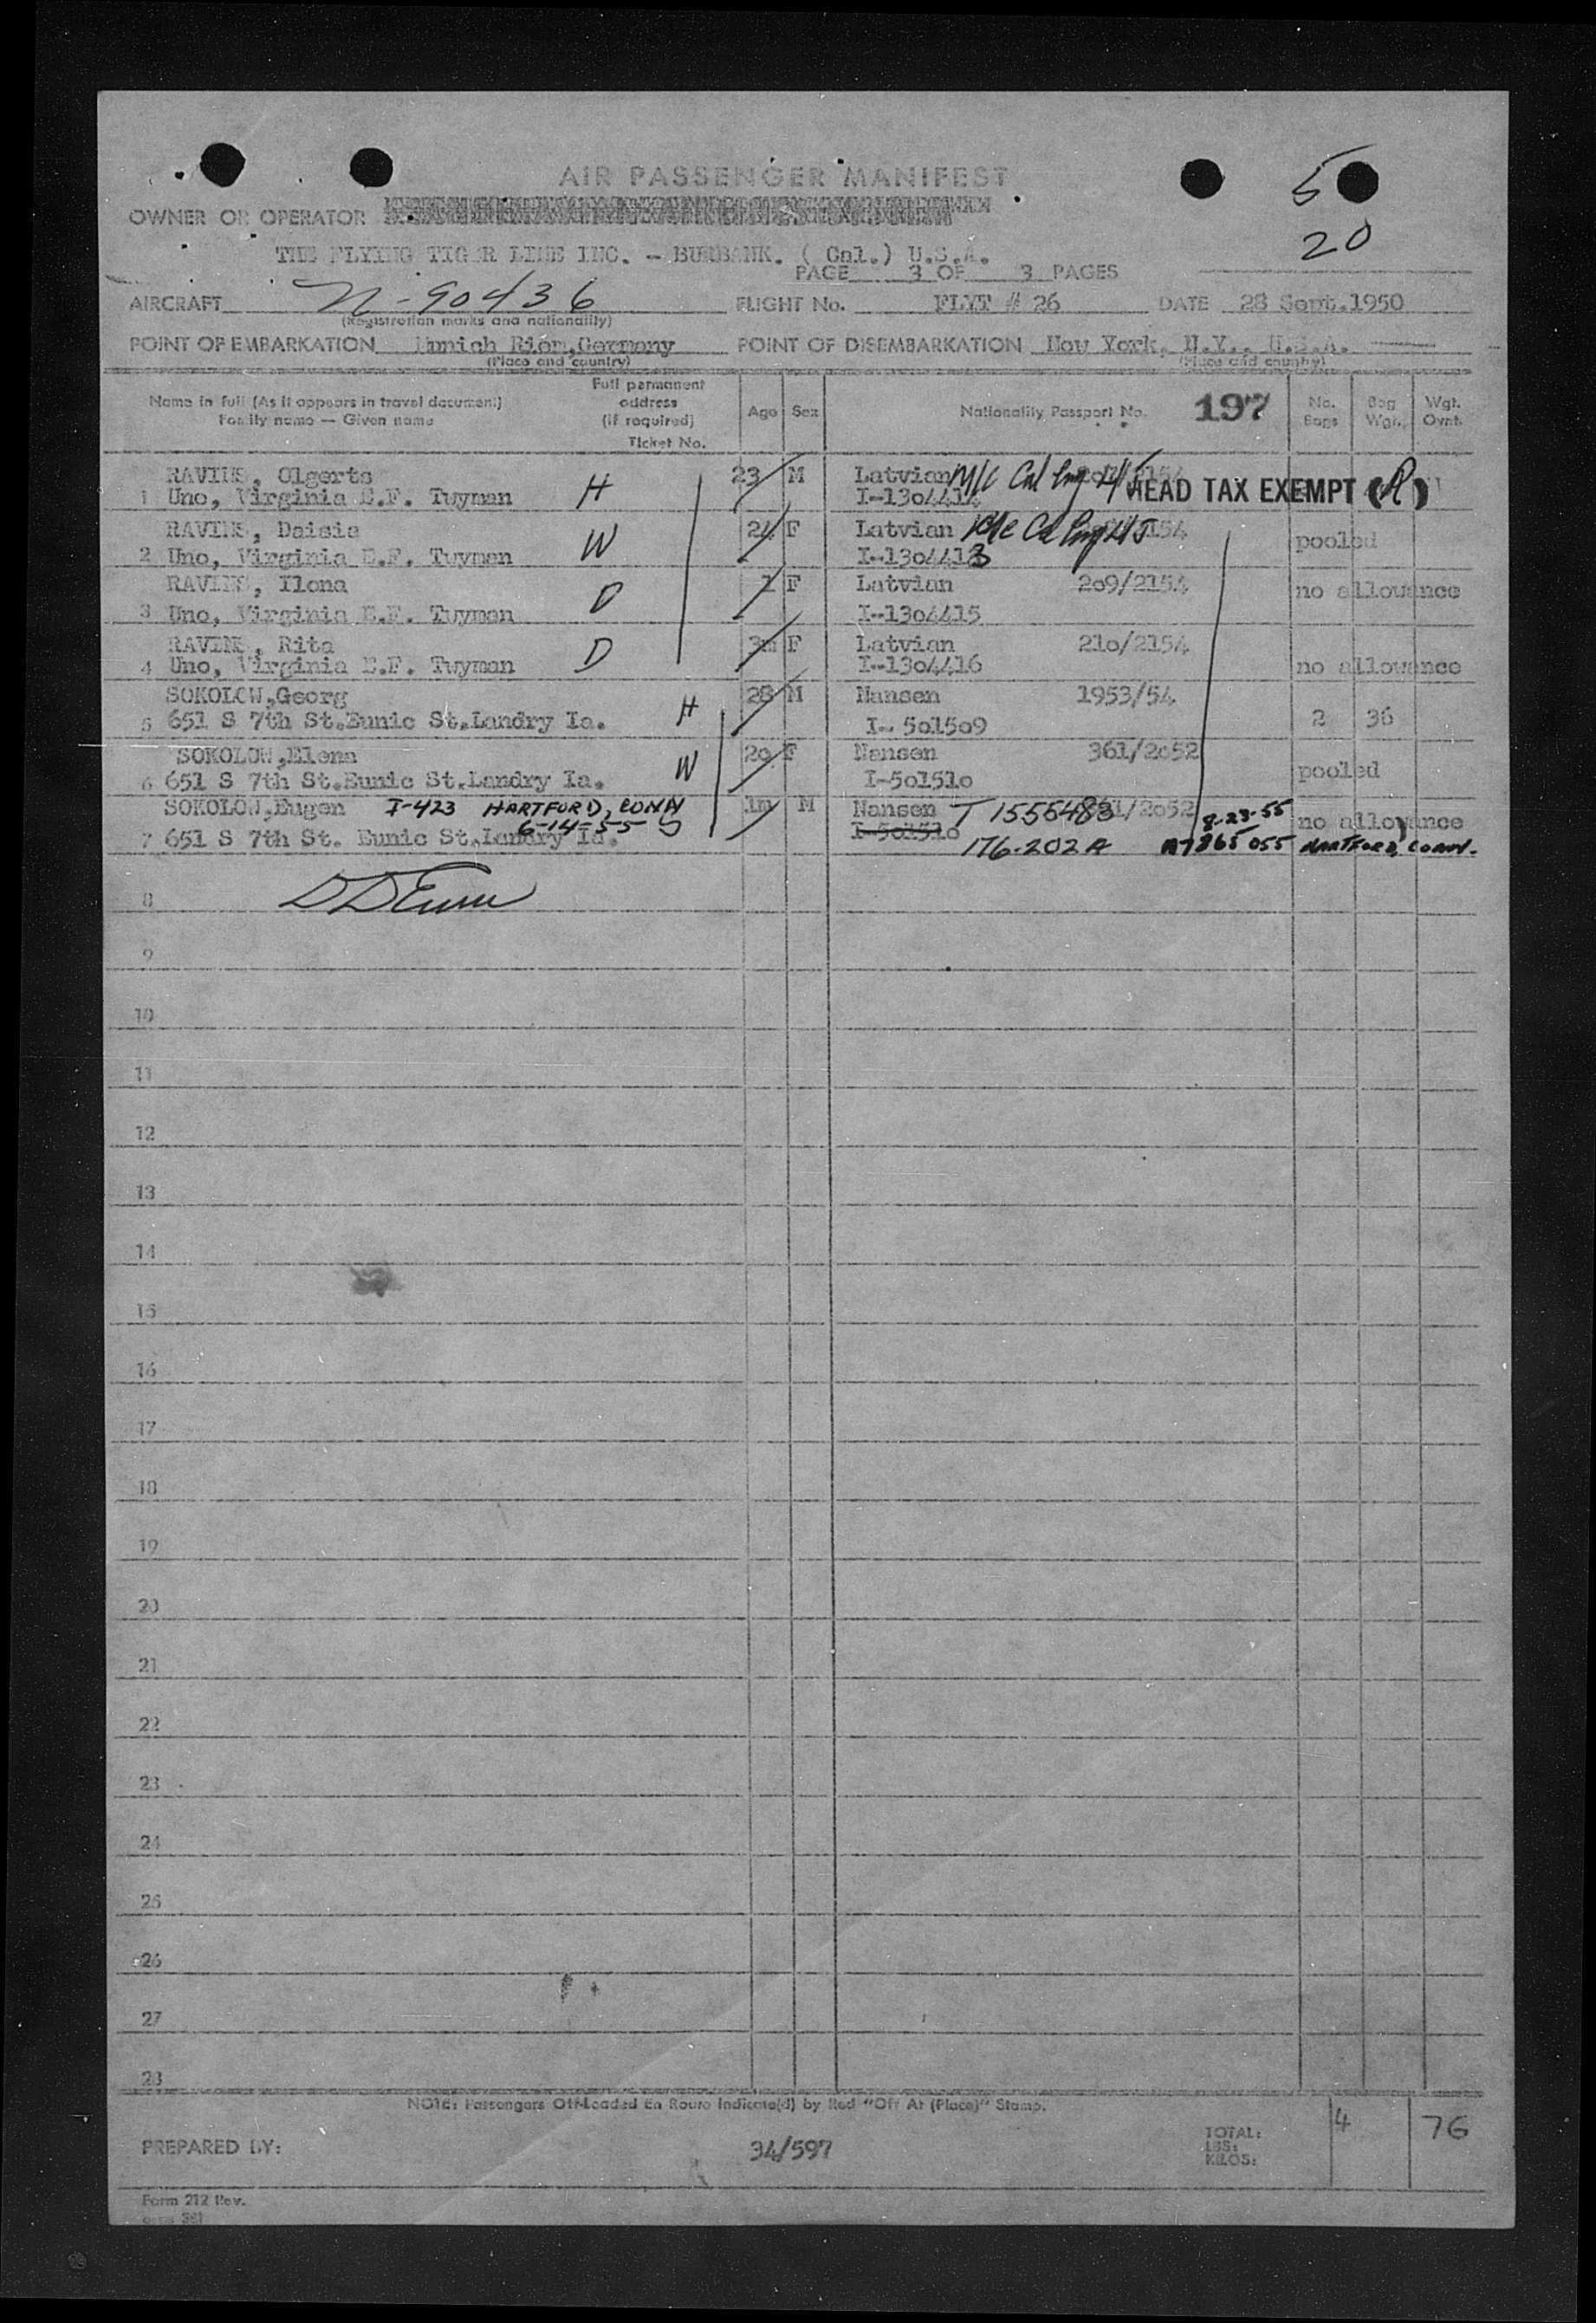 5
20
AIR PASSENGER MANIFEST
OWNER OR OPERATOR
THE FLYING TIGER LINE INC. - BURBANK. ( Cal.) U.S.A.
PAGE 3 OF 3 PAGES
AIRCRAFT N-90436 FLIGHT No. FLYT # 26 DATE 28 Sept.1950
(Registration marks and nationality)
POINT OF EMBARKATION Munich Riem,Germany POINT OF DISEMBARKATION New York, N.Y., U.S.A.
(Place and country) (Place and country)
Name in full (As it appears in travel document) Family name — Given name
Full permanent address (if required) Ticket No.
Age Sex Nationality Passport No. 197 No. Bags Bag Wgt. Wgt. Ovnt.
RAVINS, Olgerts H 23 M Latvian 2154
1 Uno, Virginia E.F. Twyman I-1304414 HEAD TAX EXEMPT (R)
RAVINS, Daisia W 24 F Latvian 2154
2 Uno, Virginia E.F. Twyman I-1304413 pooled
RAVINS, Ilona D 1 F Latvian 209/2154 no allowance
3 Uno, Virginia E.F. Twyman I-1304415
RAVINS, Rita D 3m F Latvian 210/2154
4 Uno, Virginia E.F. Twyman I-1304416 no allowance
SOKOLOW,Georg H 28 M Nansen 1953/54
5 651 S 7th St.Eunic St.Landry Ia. I- 501509 2 36
SOKOLOW,Elena W 20 F Nansen 361/2052
6 651 S 7th St.Eunic St.Landry Ia. I-501510 pooled
SOKOLOW,Eugen I-423 HARTFORD, CONN 1m M Nansen T 1555483 1/2052 8-23-55 no allowance
6-14-55
7 651 S 7th St. Eunic St.Landry Ia. I-501510 176-202A A7865 055 HARTFORD, CONN.
8
9
10
11
12
13
14
15
16
17
18
19
20
21
22
23
24
25
26
27
28
NOTE: Passengers Off-Loaded En Route Indicate(d) by Red "Off At (Place)" Stamp.
PREPARED BY: 34/597 TOTAL: 4 76
LBS:
KILOS:
Form 212 Rev.